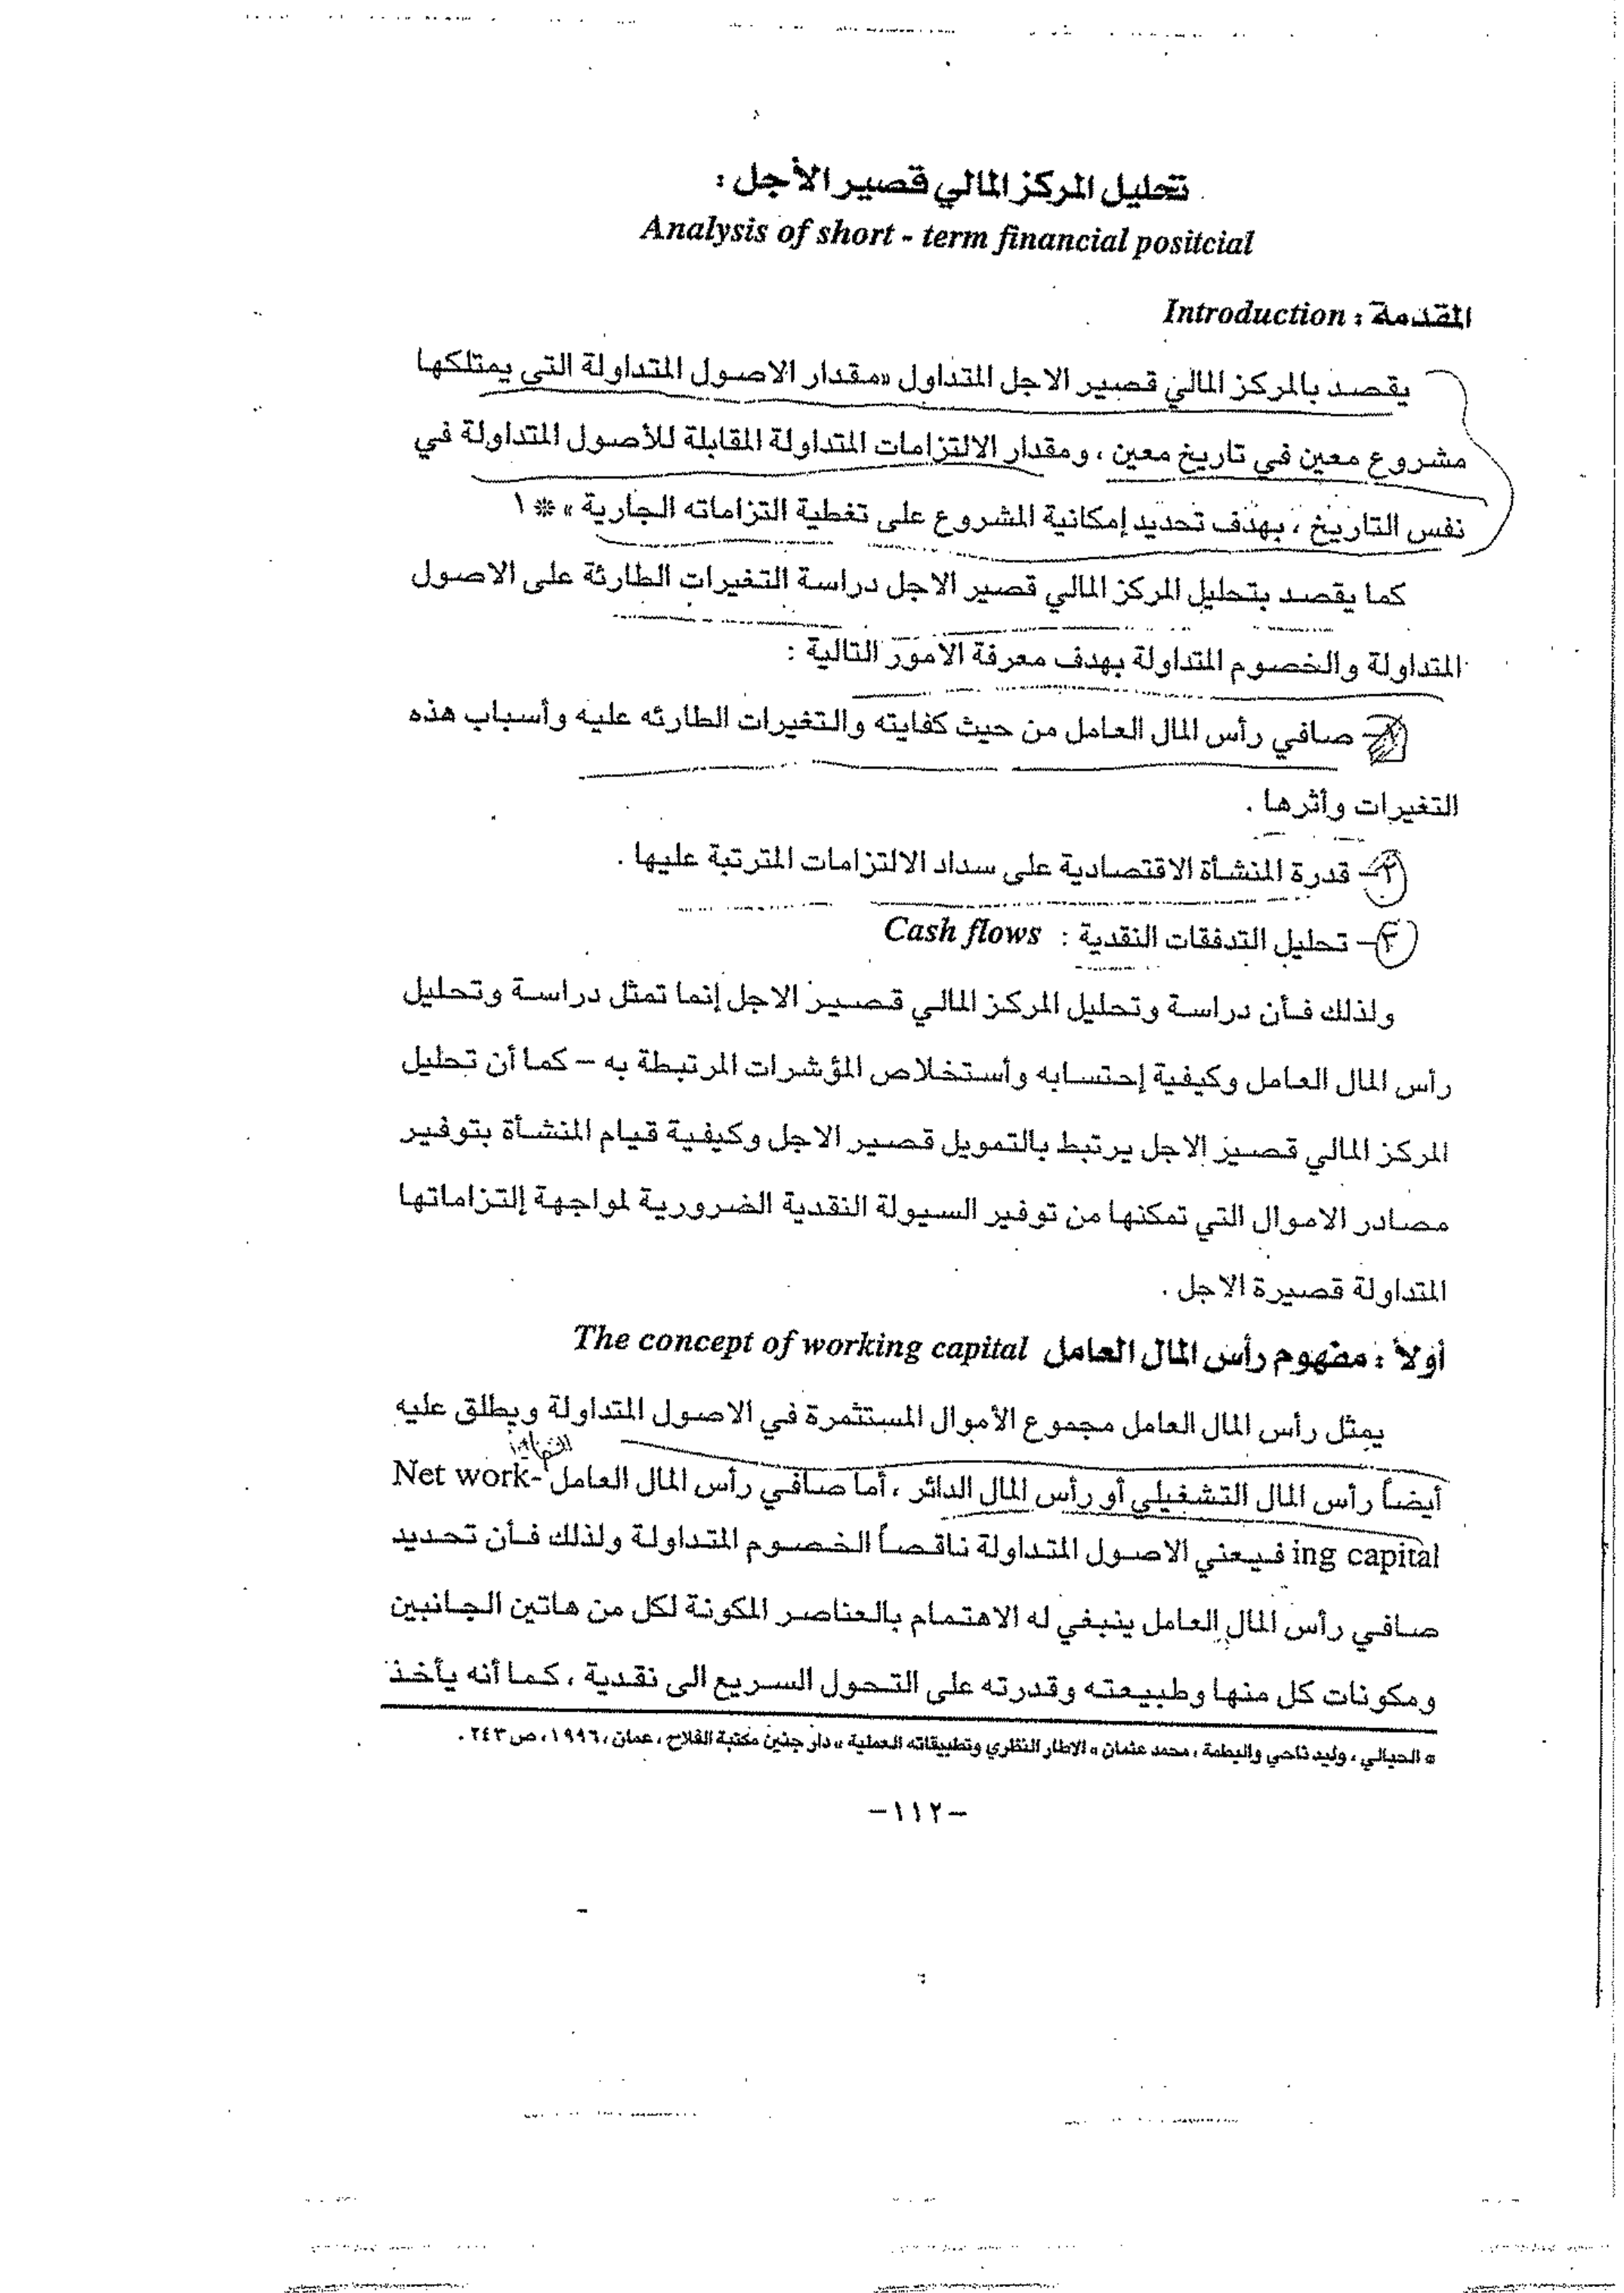 تحليل المركز المالي قصير الأجل :
Analysis of short - term financial positcial
المقدمة : Introduction
يقصد بالمركز المالي قصير الاجل المتداول «مقدار الاصول المتداولة التي يمتلكها
مشروع معين في تاريخ معين ، ومقدار الالتزامات المتداولة المقابلة للأصول المتداولة في
نفس التاريخ ، بهدف تحديد إمكانية المشروع على تغطية التزاماته الجارية » * ١
كما يقصد بتحليل المركز المالي قصير الاجل دراسة التغيرات الطارئة على الاصول
المتداولة والخصوم المتداولة بهدف معرفة الامور التالية :
١- صافي رأس المال العامل من حيث كفايته والتغيرات الطارئه عليه وأسباب هذه
التغيرات وأثرها .
٢- قدرة المنشأة الاقتصادية على سداد الالتزامات المترتبة عليها .
٣- تحليل التدفقات النقدية : Cash flows
ولذلك فأن دراسة وتحليل المركز المالي قصير الاجل إنما تمثل دراسة وتحليل
رأس المال العامل وكيفية إحتسابه وأستخلاص المؤشرات المرتبطة به – كما أن تحليل
المركز المالي قصير الاجل يرتبط بالتمويل قصير الاجل وكيفية قيام المنشأة بتوفير
مصادر الاموال التي تمكنها من توفير السيولة النقدية الضرورية لمواجهة إلتزاماتها
المتداولة قصيرة الاجل .
أولاً : مفهوم رأس المال العامل The concept of working capital
يمثل رأس المال العامل مجموع الأموال المستثمرة في الاصول المتداولة ويطلق عليه
أيضاً رأس المال التشغيلي أو رأس المال الدائر ، أما صافي رأس المال العامل Net work-
ing capital فيعني الاصول المتداولة ناقصاً الخصوم المتداولة ولذلك فأن تحديد
صافي رأس المال العامل ينبغي له الاهتمام بالعناصر المكونة لكل من هاتين الجانبين
ومكونات كل منها وطبيعته وقدرته على التحول السريع الى نقدية ، كما أنه يأخذ
* الحيالي ، وليد ناجي والبطمة ، محمد عثمان « الاطار النظري وتطبيقاته العملية » دار جنين مكتبة الفلاح ، عمان ، ١٩٩٦ ، ص ٢٤٣ .
–١١٢–